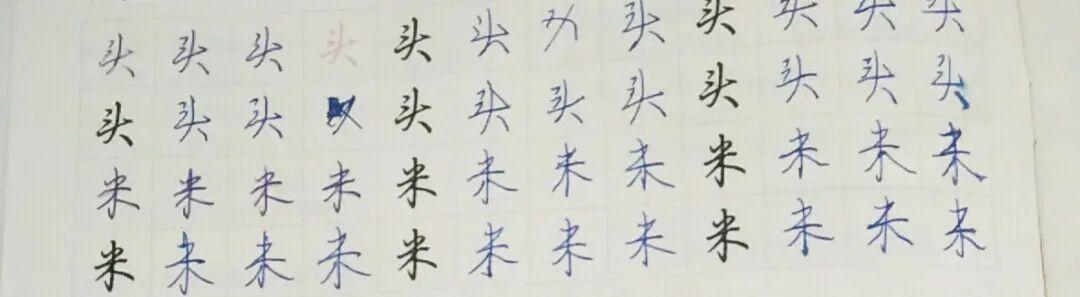 头头头头头头头头头头头
头头头头头头头头头头头
米米米米米米米米米米米米
米米米米米米米米米米米米